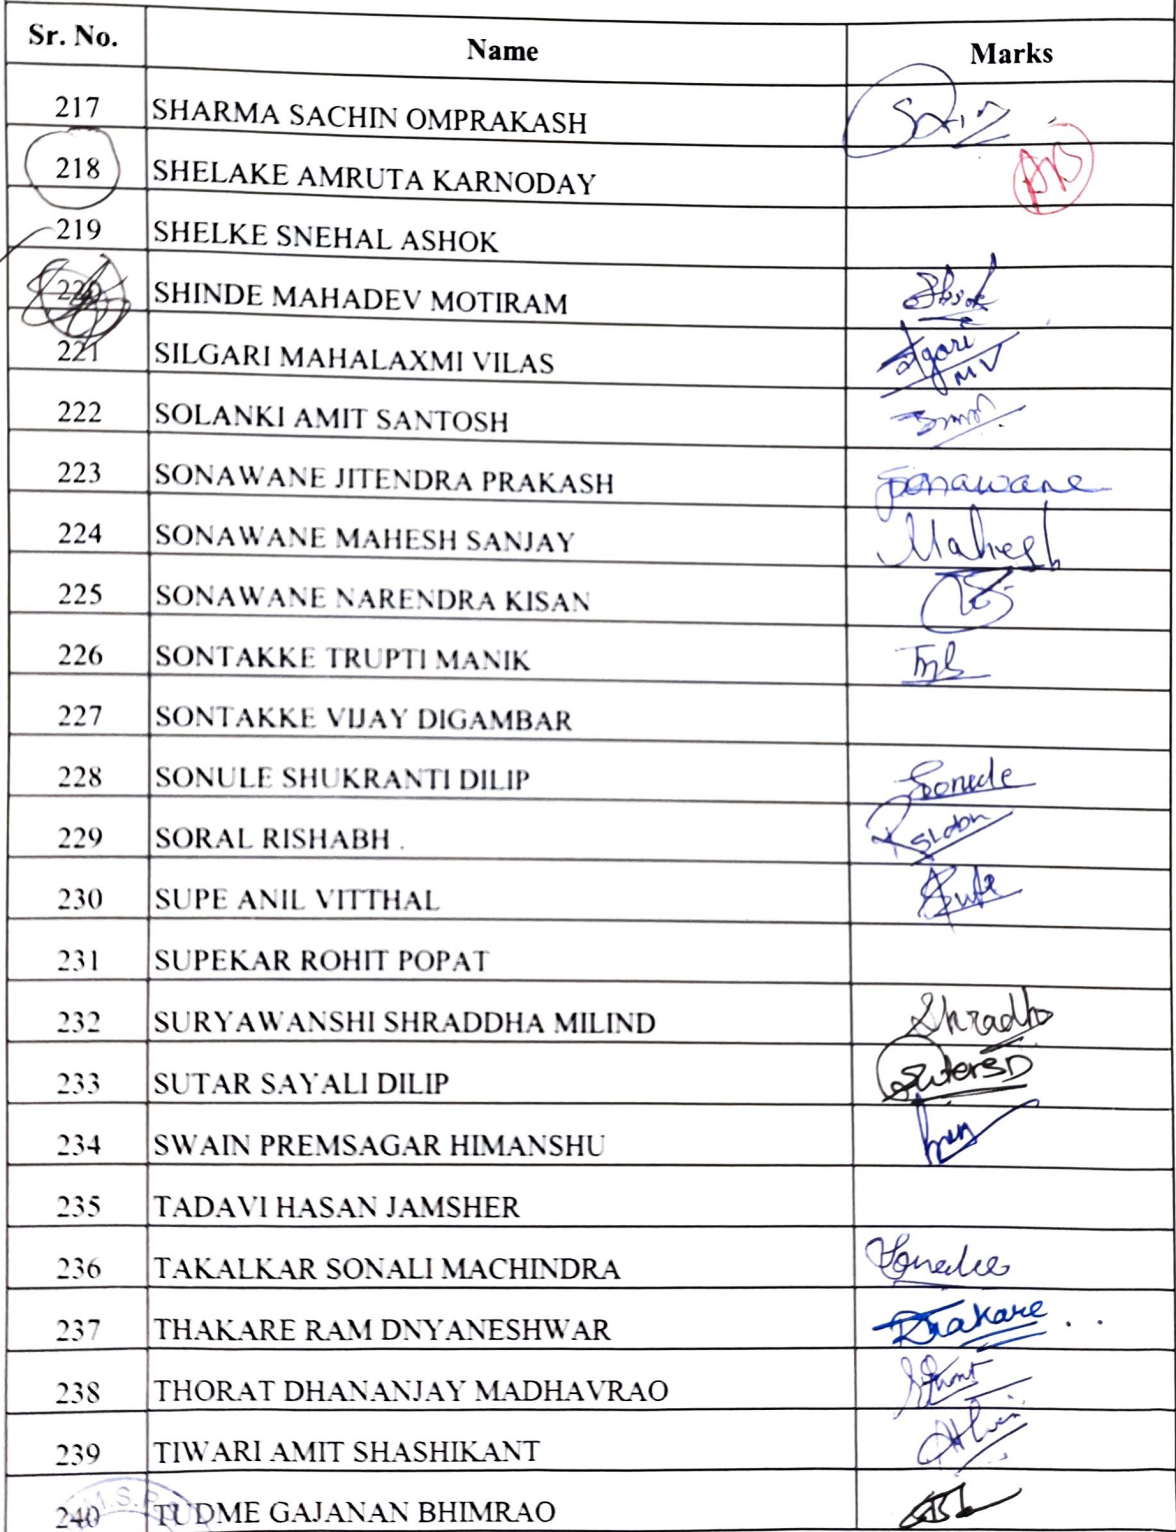 Sr. No. Name Marks
217 SHARMA SACHIN OMPRAKASH
218 SHELAKE AMRUTA KARNODAY AB
219 SHELKE SNEHAL ASHOK
220 SHINDE MAHADEV MOTIRAM
221 SILGARI MAHALAXMI VILAS MV
222 SOLANKI AMIT SANTOSH
223 SONAWANE JITENDRA PRAKASH Sonawane
224 SONAWANE MAHESH SANJAY Mahesh
225 SONAWANE NARENDRA KISAN
226 SONTAKKE TRUPTI MANIK
227 SONTAKKE VIJAY DIGAMBAR
228 SONULE SHUKRANTI DILIP Sonule
229 SORAL RISHABH .
230 SUPE ANIL VITTHAL Supe
231 SUPEKAR ROHIT POPAT
232 SURYAWANSHI SHRADDHA MILIND Shradha
233 SUTAR SAYALI DILIP SutarSD
234 SWAIN PREMSAGAR HIMANSHU
235 TADAVI HASAN JAMSHER
236 TAKALKAR SONALI MACHINDRA
237 THAKARE RAM DNYANESHWAR Thakare
238 THORAT DHANANJAY MADHAVRAO
239 TIWARI AMIT SHASHIKANT
240 TUDME GAJANAN BHIMRAO